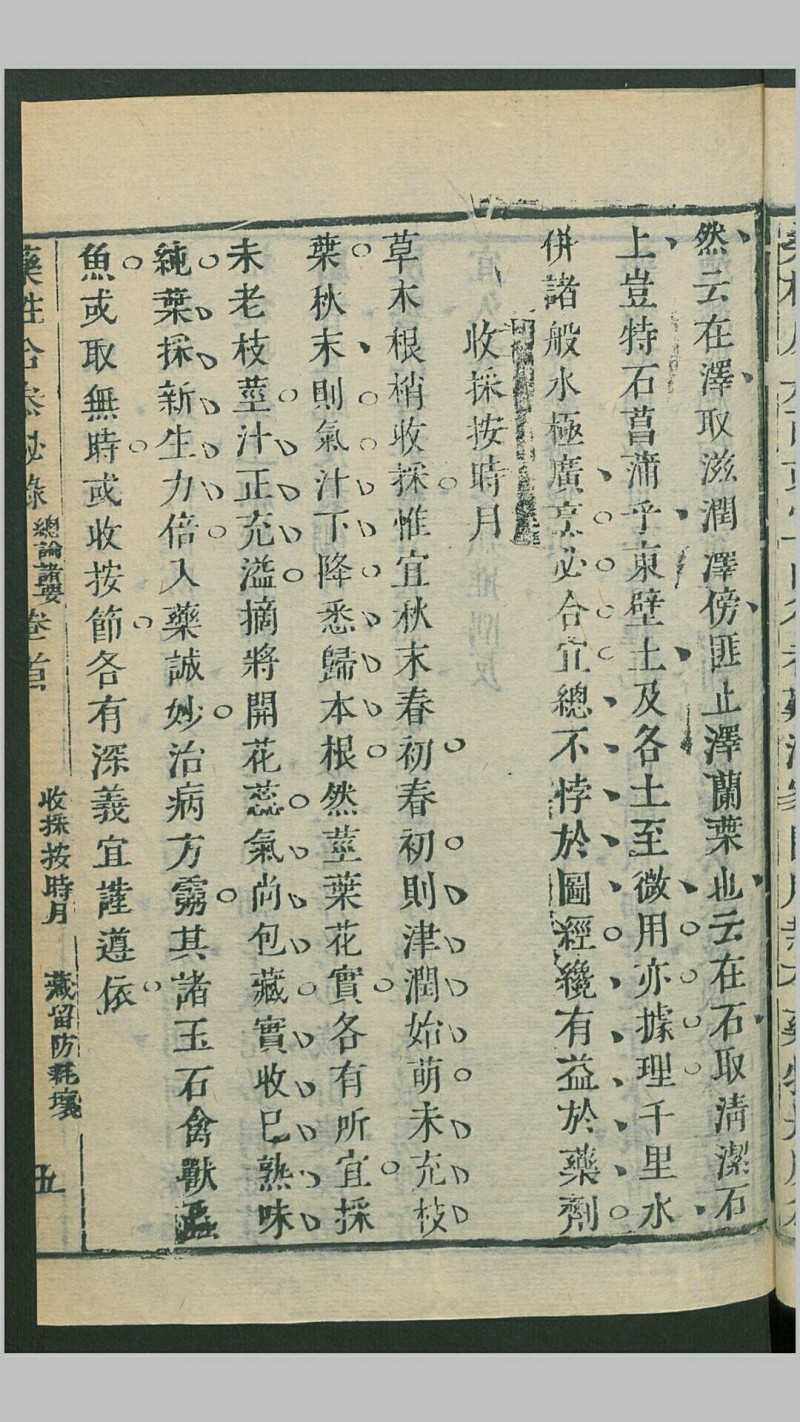 然云在澤取滋潤澤傍匪止澤蘭葉也云在石取清潔石
上豈特石菖蒲乎東壁土及各土至微用亦據理千里水
併諸般水極廣烹必合宜總不悖於圖經纔有益於藥劑
收採按時月
草木根梢收採惟宜秋末春初春初則津潤始萌未充枝
葉秋末則氣汁下降悉歸本根然莖葉花實各有所宜採
未老枝莖汁正充溢摘將開花蕊氣尚包藏實收已熟味
純葉採新生力倍入藥誠妙治病方霛其諸玉石禽獸蟲
魚或取無時或收按節各有深義宜謹遵依
藥性合參必錄 總論諸要 卷首 收採按時月 藏留防耗壞 五